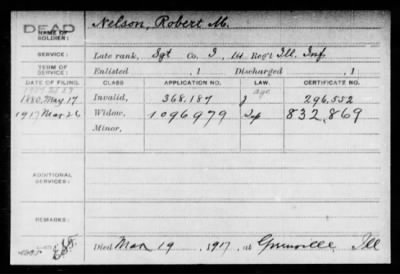 DEAD Nelson, Robert M.
NAME OF SOLDIER:
SERVICE: Late rank, Sgt Co. I, 1st Reg't Ill. Inf.
TERM OF SERVICE: Enlisted , 1 Discharged , 1
DATE OF FILING. CLASS APPLICATION NO. LAW. CERTIFICATE NO.
age
1880, May 17 Invalid, 368.187 296,552
1917 Mar 26 Widow, 1096979 832,869
Minor,
ADDITIONAL SERVICES:
REMARKS:
Died Mar 19, 1917, at Ill